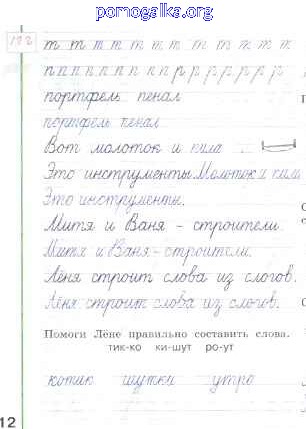 pomogalka.org
122 т т т т т т т т т т т т т
п п п п п п п п р р р р р р р
портфель пенал
портфель пенал
Вот молоток и пила .
Это инструменты. Молоток и пила
Это инструменты.
Митя и Ваня - строители.
Митя и Ваня - строители.
Лёня строит слова из слогов.
Лёня строит слова из слогов.
Помоги Лёне правильно составить слова.
тик-ко ки-шут ро-ут
котик шутки утро
12